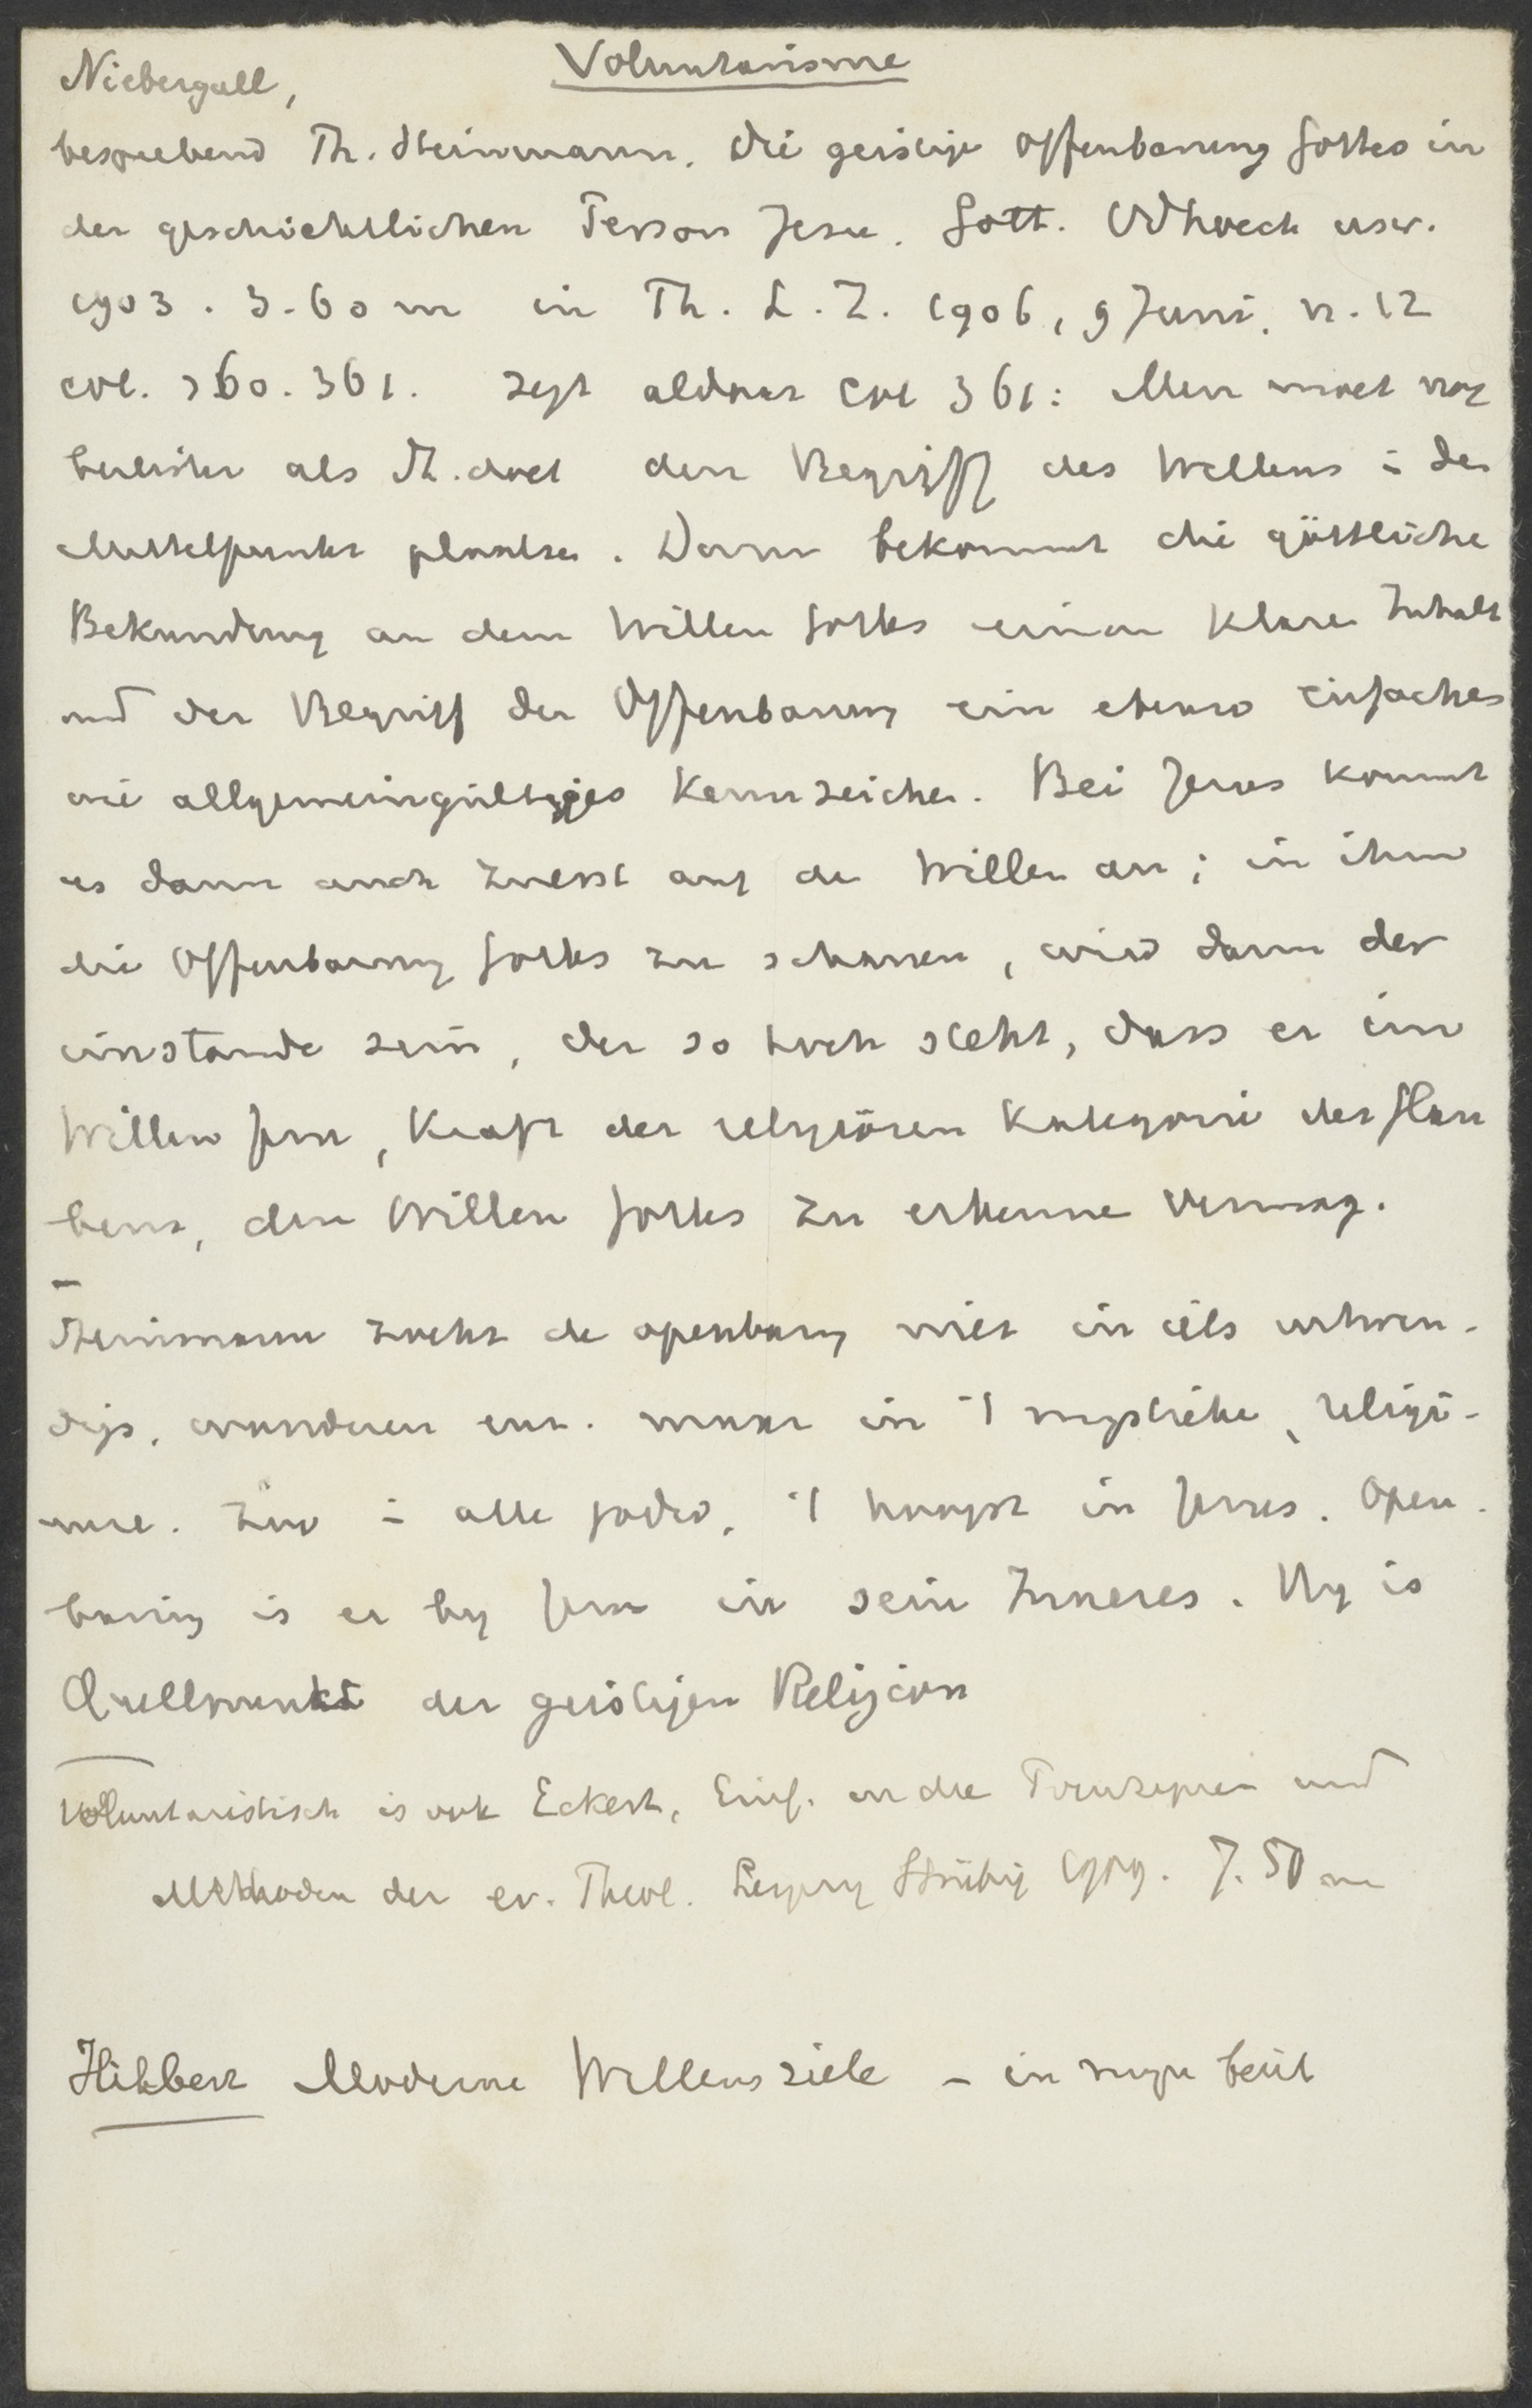 Voluntarisme
Niebergall,
besprekend Th. Steinmann. Die geistige Offenbarung Gottes in
der geschichtlichen Person Jesu. Gött. VdHoeck usw.
1903. 3.60 m in Th. L. Z. 1906, 9 Juni. n. 12
col. 360. 361. zegt aldaar col 361: Men moet nog
beslister als St. doet den Begriff des Willens i. der
Mittelpunkt plaatsen. Dann bekommt die göttliche
Bekundung an dem Willen Gottes einen klaren Inhalt
und der Begriff der Offenbarung ein ebenso einfaches
wie allgemeingültiges Kennzeichen. Bei Jesus kommt
es dann auch zuerst auf den Willen an; in ihm
die Offenbarung Gottes zu schauen, wird dann der
imstande sein, der so hoch steht, dass er im
Willen Jesu, kraft der religiösen Kategorie des Glau
bens, den Willen Gottes zu erkennen vermag.
Steinmann zoekt de openbaring niet in iets uitwen-
digs, wonderen enz. maar in 't mystieke, religi-
euse. Zoo i. alle godsd. 't hoogst in Jezus. Open-
baring is er bij Jezus in sein Inneres. Hij is
Quellpunkt der geistigen Religion
Voluntaristisch is ook Eckert, Einf. in die Prinzipien und
Methoden der ev. Theol. Leipzig Strübig 1909. 7.50 m
Hilbert Moderne Willensziele – in mijn bezit